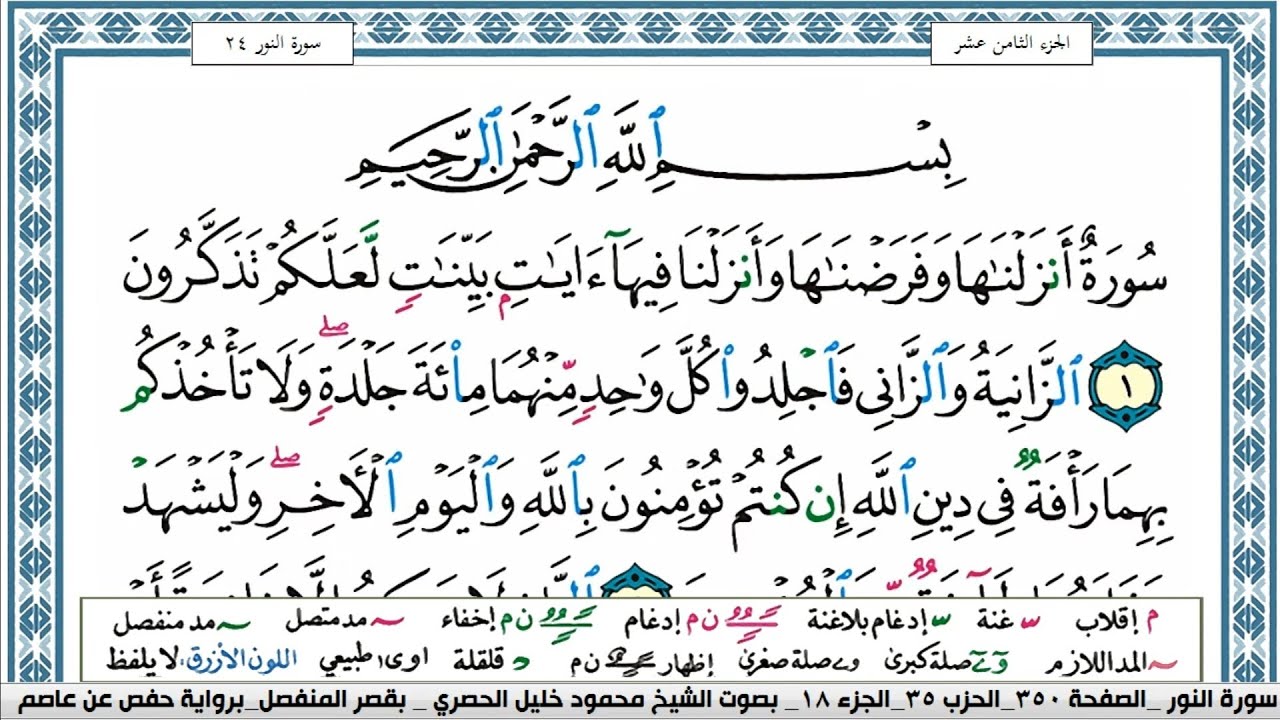 الجزء الثامن عشر
سورة النور ٢٤
بِسْمِ ٱللَّهِ ٱلرَّحْمَٰنِ ٱلرَّحِيمِ
سُورَةٌ أَنزَلْنَٰهَا وَفَرَضْنَٰهَا وَأَنزَلْنَا فِيهَآ ءَايَٰتٍۭ بَيِّنَٰتٍ لَّعَلَّكُمْ تَذَكَّرُونَ
١ ٱلزَّانِيَةُ وَٱلزَّانِى فَٱجْلِدُوا۟ كُلَّ وَٰحِدٍ مِّنْهُمَا مِا۟ئَةَ جَلْدَةٍ ۖ وَلَا تَأْخُذْكُم
بِهِمَا رَأْفَةٌ فِى دِينِ ٱللَّهِ إِن كُنتُمْ تُؤْمِنُونَ بِٱللَّهِ وَٱلْيَوْمِ ٱلْأَخِرِ ۖ وَلْيَشْهَدْ
م إقلاب ~ غنة ~ إدغام بلاغنة ن م إدغام ن م إخفاء ~ مد متصل ~ مد منفصل
~ المد اللازم و ے صلة كبرى و ے صلة صغرى إظهار ن م د قلقلة ا و ى طبيعي اللون الأزرق، لا يلفظ
سورة النور _الصفحة ٣٥٠_الحزب ٣٥_الجزء ١٨_ بصوت الشيخ محمود خليل الحصري _ بقصر المنفصل_برواية حفص عن عاصم